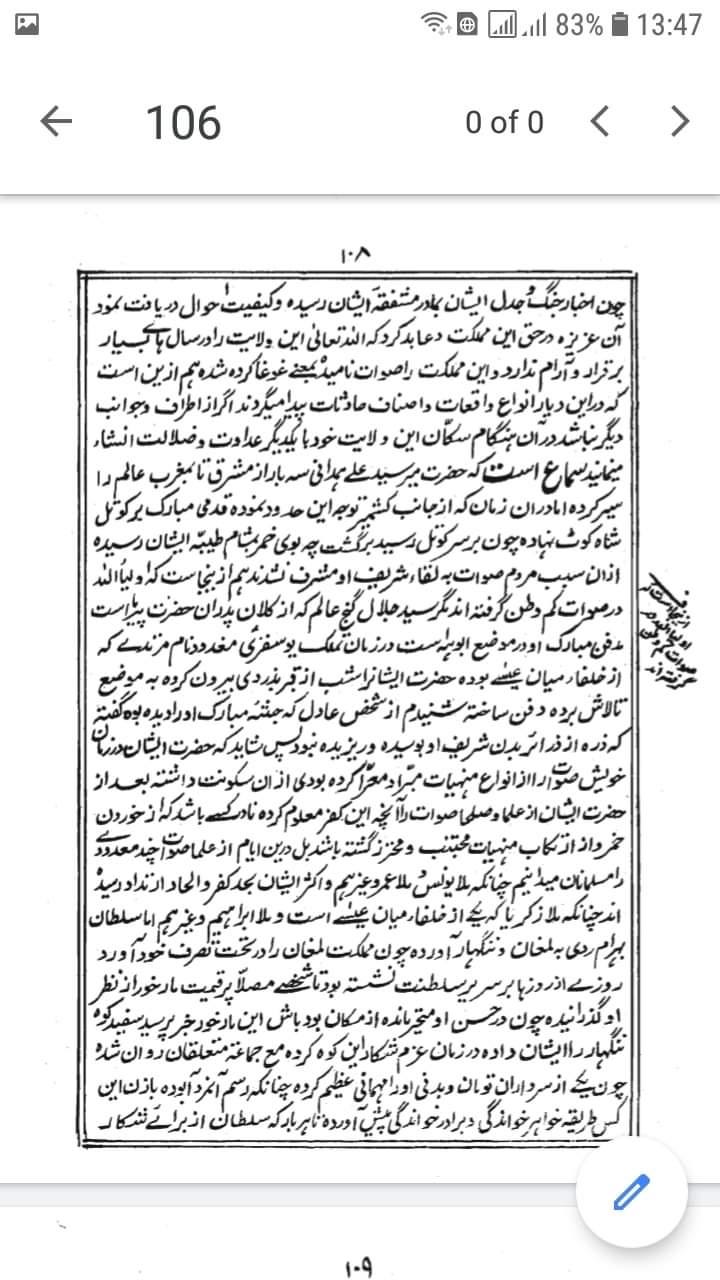 83% 13:47
106
0 of 0
۱۰۸
چون اخبار جنگ و جدل ایشان بمادر مشفقهٔ ایشان رسیده و کیفیت احوال دریافت نمود
آن عزیزه در حق این مملکت دعا بد کرد که الله تعالی این ولایت را در سال ها بسیار
برقرار و آرام ندارد و این مملکت را صوات نامیدند بمعنے غوغا کرده شده هم ازین است
که در این دیار انواع واقعات و اصناف حادثات پیدا میگردند اگر از اطراف و جوانب
دیگر نباشد در آن هنگام سکان این ولایت خود با یکدیگر عداوت و ضلالت انشاء
مینمایند سماع است که حضرت میر سید علے همدانی سه بار از مشرق تا بمغرب عالم را
سیر کرده اما در ان زمان که از جانب کشمیر توجه این حدود نموده قدمی مبارک بر کوتل
شاه کوٹ نهاده چون بر سر کوتل رسید برگشت چه بوی خمر بمشام طیبهٔ ایشان رسیده
ازان سبب مردم صوات به لقاء شریف او مشرف نشدند هم ازینجا است که اولیاء الله
در صوات کم وطن گرفته اند مگر سید جلال گنج عالم که از کلان پدران حضرت پیر است
مدفن مبارک او در موضع ابوہہ است در زمان ملک یوسفزی مغدود نام مرتدے که
از خلفاء میان عیسے بوده حضرت ایشانرا شب از قبر بدزدی بیرون کرده به موضع
تالاش برده دفن ساخته شنیدم از شخص عادل که جثهٔ مبارک او را دیده بود گفته
که ذره از ذرائر بدن شریف او بوسیده و ریزیده نبود پس شاید که حضرت ایشان در زمان
خویش صوات را از انواع منهیات مبرا و معرا کرده بودی ازان سکونت داشته بعد از
حضرت ایشان از علما و صلحا صوات را آنچه این کفر معلوم کرده نادر کسے باشد که از خوردن
خمر و از ارتکاب منهیات مجتنب و محترز گشته باشد بل درین ایام از علما صوات چند معدودے
را مسلمانان میدانیم چنانکه ملا یونس و ملا عمر و غیرهم و اکثر ایشان بحد کفر و الحاد و ارتداد رسیده
اند چنانکه ملا زکریا که یکے از خلفاء میان عیسے است و ملا ابراهیم و غیرهم اما سلطان
بهرام ردی به لمغان و ننگنهار آورده چون مملکت لمغان را در تحت تصرف خود آورد
روزے از روزها بر سر سریر سلطنت نشسته بود تا شخصے مصلا پر قیمت مارخور از نظر
او گذرانیده چون در حسن او متحیر مانده از مکان بود باش این مارخور خبر پرسید سفید کوه
ننگنهار را ایشان داده در زمان عزم شکار این کوه کرده مع جماعة متعلقان روان شده
چون یکے از سرداران تومان و بدنی او را مهمانی عظیم کرده چنانکه رسم آنمرد آبوده بازن این
کس طریقه خواهر خواندگی و برادر خواندگی پیش آورده تا هر بار که سلطان از برائے شکار
ازینجا است که
اولیاء الله در
صوات کم وطن
گرفته اند
۱۰۹